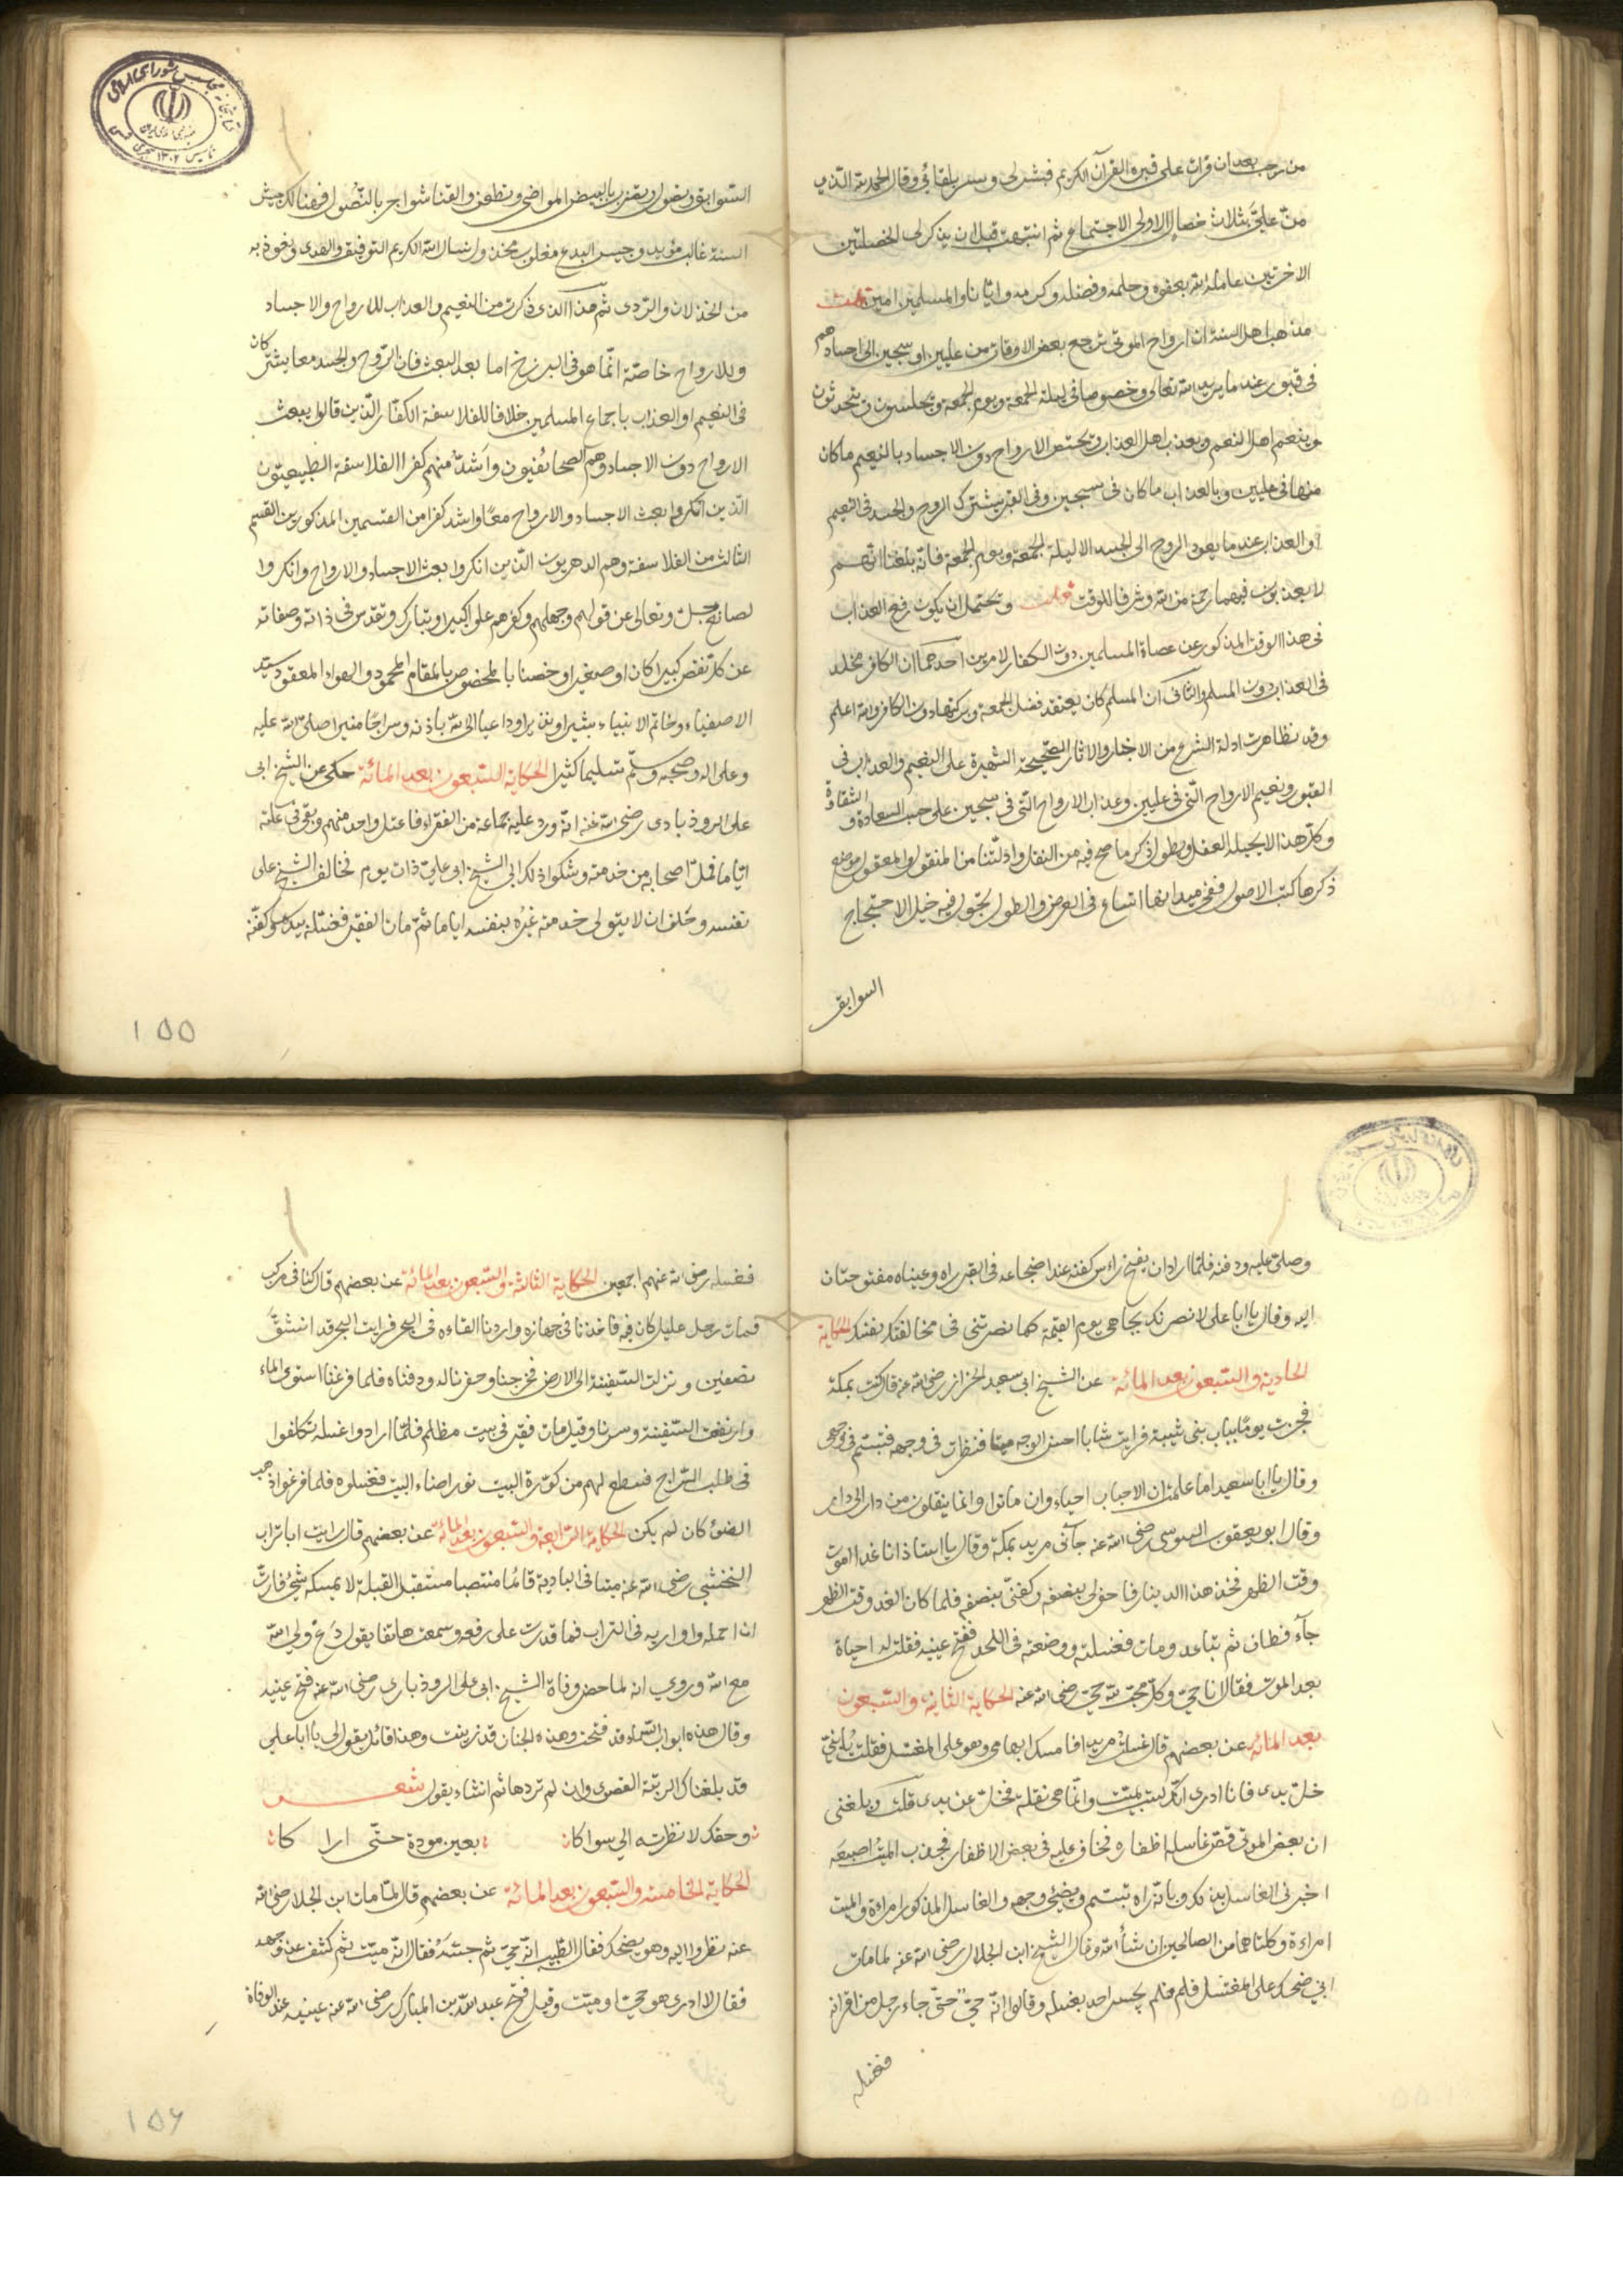 من رجب بعد ان قرات على قبره القرآن الكريم فبشر لى وسر بلقائى وقال الحمد لله الذى
من علىّ بثلاث خصال الاولى الاجتماع ثم انتبهت قبل ان يذكر لى الخصلتين
الاخرتين عامله الله بعفوه وحلمه وفضله وكرمه وايانا والمسلمين امين قلت
مذهب اهل السنة ان ارواح الموتى ترجع بعض الاوقات من عليين او سجين الى اجسادهم
فى قبور عند ما يريد الله تعالى وخصوصا فى ليلة الجمعة ويوم الجمعة ويجلسون ويتحدثون
وينعم اهل النعيم ويعذب اهل العذاب وتختص الارواح دون الاجساد بالنعيم ما كان
منها فى عليين وبالعذاب ما كان فى سجين وفى القبر يشترك الروح والجسد فى النعيم
والعذاب عند ما يعود الروح الى الجسد الا ليلة الجمعة ويوم الجمعة فانه بلغنا انهم
لا يعذبون فيهما رحمة من الله وشرفا للوقت قلت ويحتمل ان يكون رفع العذاب
فى هذا الوقت المذكور عن عصاة المسلمين دون الكفار لامرين احدهما ان الكافر مخلد
فى العذاب دون المسلم والثانى ان المسلم كان يعتقد فضل الجمعة وبركتها دون الكافر والله اعلم
وقد تظاهرت ادلة الشرع من الاخبار والاثار الصحيحة الشهيرة على النعيم والعذاب فى
القبور ونعيم الارواح التى فى عليين وعذاب الارواح التى فى سجين على حسب السعادة و الشقاوة
وكل هذا لا يحيله العقل ويطول ذكر ما صح فيه من النقل وادلتنا من المنقول والمعقول موضع
ذكرها كتب الاصول ففى ميدانها اتساع فى العرض والطول يجول فيه خيل الاحتجاج
السوابق
السوابق وتصول ويقترب بالبيض المواضى وتطعن والقنا شواجر بالنصول فهنالك جيش
السنة غالب مؤيد وجيش البدع مغلوب مخذول نسال الله الكريم التوفيق والهدى ونعوذ به
من الخذلان والردى ثم هذا الذى ذكرت من النعيم والعذاب للارواح والاجساد
وللارواح خاصة انما هو فى البرزخ اما بعد البعث فان الروح والجسد معا يشتركان
فى النعيم او العذاب باجماع المسلمين خلافا للفلاسفة الكفار الذين قالوا يبعث
الارواح دون الاجساد وهم الصحابئيون واشد منهم كفرا الفلاسفة الطبيعيون
الذين انكروا بعث الاجساد والارواح معًا واشد كفرا من القسمين المذكورين القسم
الثالث من الفلاسفة وهم الدهريون الذين انكروا بعث الاجساد والارواح وانكروا
لصانع جل وتعالى عن قولهم وجهلهم وكفرهم علوا كبيرا وتبارك وتقدس فى ذاته وصفاته
عن كل نقص كبيرا كان او صغيرا وخصنا بالمخصوص بالمقام المحمود واللواء المعقود سيد
الاصفياء وخاتم الانبياء بشيرا ونذيرا وداعيا الى الله باذنه وسراجًا منيرا صلى الله عليه
وعلى اله وصحبه وسلم تسليما كثيرا الحكاية السبعون بعد المائة حكى عن الشيخ ابى
على الروذبادى رضى الله عنه انه ورد عليه جماعة من الفقراء فاعتل واحد منهم وبقى فى علته
اياما فمل اصحابه من خدمته وشكوا ذلك الى الشيخ ابى على ذات يوم فخالف الشيخ على
نفسه وحلف ان لا يتولى خدمته غيره بنفسه اياما ثم مات الفقير فغسله بيده وكفنه
١٥٥
وصلى عليه ودفنه فلما اراد ان يفتح راس كفنه عند اضجاعه فى القبر راه وعيناه مفتوحتان
اليه وقال يا ابا على لانصرنك بجاهى يوم القيمة كما نصرتنى فى مخالفتك نفسك الحكاية
الحادية والسبعون بعد المائة عن الشيخ ابى سعيد الخزاز رضى الله عنه قال كنت بمكة
فجزت يومًا بباب بنى شيبة فرايت شابا احسن الوجه ميتا فنظرت فى وجهه فتبسم فى وجهى
وقال يا ابا سعيد اما علمت ان الاحباب احياء وان ماتوا وانما ينقلون من دار الى دار
وقال ابو يعقوب السوسى رضى الله عنه جآنى مريد بمكة وقال يا استاذ انا غدا اموت
وقت الظهر فخذ هذا الدينار فاحفر لى بنصفه وكفنى بنصفه فلما كان الغد وقت الظهر
جآء فطاف ثم تباعد ومات فغسلته ووضعته فى اللحد ففتح عينيه فقلت له احياة
بعد الموت فقال انا حى وكل محب لله حى رضى الله عنه الحكاية الثانية والسبعون
بعد المائة عن بعضهم قال غسلت مريدا فامسك ابهامى وهو على المغتسل فقلت يا بنى
خل يدى فانا ادرى انك لست بميت وانما هى نقلة فخلى عن يدى قلت وبلغنى
ان بعض الموتى قص غاسله اظفاره فخاف عليه فى بعض الاظفار فجذب الميت اصبعه
اخبرنى الغاسل بذلك وبانه راه تبسم ويضئ وجهه والغاسل المذكور امراة والميت
امراءة وكلتاهما من الصالحين ان شأ الله وقال الشيخ ابن الجلال رضى الله عنه لما مات
ابي ضحك على المغتسل فلم فلم يجسر احد يغسله وقالوا انه حى حتى جاء رجل من اقرانه
فغسله
فغسله رضى الله عنهم اجمعين الحكاية الثالثة والسبعون بعد المائة عن بعضهم قال كنا فى مركب
فمات رجل عليل كان فيه فاخذنا فى جهازه واردنا القاءه فى البحر فرايت البحر قد انشقّ
نصفين ونزلت السفينة الى الارض فخرجنا وحفرنا له ودفناه فلما فرغنا استوى الماء
وارتفعت السفينة وسرنا وقيل مات فقير فى بيت مظلم فلما ارادوا غسله تكلفوا
فى طلب السراج فسطع لهم من كوّة البيت نور اضاء البيت فغسلوه فلما فرغوا ذهب
الضوء كان لم يكن الحكاية الرابعة والسبعون بعد المائة عن بعضهم قال رايت ابا تراب
النخشبى رضى الله عنه ميتا فى البادية قائما منتصبا مستقبل القبلة لا يمسكه شئ فارت
ان احمله واواريه فى التراب فما قدرت على رفعه وسمعت هاتفا يقول دع ولى الله
مع الله وروي انه لما حضر وفاة الشيخ ابى على الروذبارى رضى الله عنه فتح عينيه
وقال هذه ابواب السماء قد فتحت وهذه الجنان قد زينت وهذا قائل يقول لى يا ابا على
قد بلغناك الرتبة القصوى وان لم تردها ثم انشاء يقول شعر
وحقك لا نظرت الي سواكا بعين مودة حتّى اراكا
الحكاية الخامسة والسبعون بعد المائة عن بعضهم قال لما مات ابن الجلا رضى الله
عنه نظروا اليه وهو يضحك فقال الطبيب انه حى ثم جسّه فقال انه ميت ثم كشف عن وجهه
فقال لا ادرى هو حى او ميت وقيل فتح عبد الله بن المبارك رضى الله عنه عينيه عند الوفاة
١٥۶